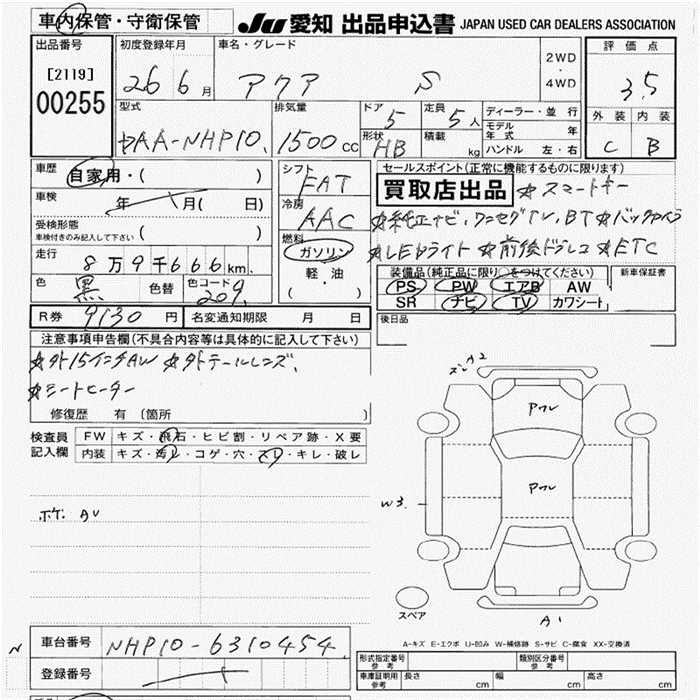 車内保管・守衛保管
JU 愛知 出品申込書 JAPAN USED CAR DEALERS ASSOCIATION
出品番号
[2119]
00255
初度登録年月
26 6 月
車名・グレード
アクア S
2WD
・
4WD
評価点
3.5
外装 内装
C B
型式
DAA-NHP10
排気量
1500 cc
ドア
5
定員
5 人
形状
HB
積載
kg
ディーラー・並行
モデル年式 年
ハンドル 左・右
車歴
自家用・( )
車検
年 月( 日)
受検形態
車検付きのみ記入して下さい ( )
走行
8万9千666 km
色
黒
色替
色コード
209
シフト
FAT
冷房
AAC
燃料
ガソリン
・
軽・油
( )
セールスポイント(正常に機能するものに限ります)
買取店出品 ☆スマートキー
☆純正ナビ,ワンセグTV,BT☆バックカメラ
☆LEDライト☆前後ドラレコ☆ETC
装備品(純正品に限り○をつけてください)
PS PW エアB AW
SR ナビ TV カワシート
新車保証書
R券 9130 円
名変通知期限 月 日
後日品
注意事項申告欄(不具合内容等は具体的に記入して下さい)
☆外15インチAW ☆外テールレンズ,
☆シートヒーター
修復歴 有 〔箇所 〕
検査員
記入欄
FW キズ・飛石・ヒビ割・リペア跡・X要
内装 キズ・汚レ・コゲ・穴・スレ・キレ・破レ
ズレA2
Pクレ
Pクレ
W3
A1
スペア
A-キズ E-エクボ U-凹み W-補修跡 S-サビ C-腐食 XX-交換済
N
車台番号 NHP10-6310454
登録番号
形式指定番号
参考
類別区分番号
参考
車庫証明用
参考
長さ cm 幅 cm 高さ cm